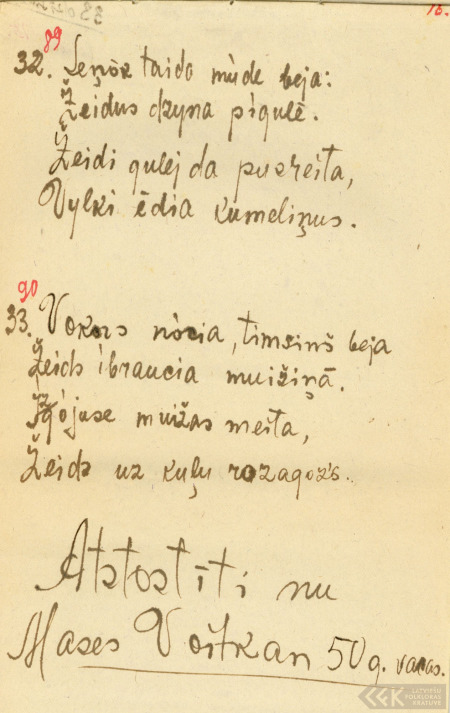 15.
89
32. Seņōk taida mùde beja:
Žeidus dzyna pìgulē.
Žeidi gulej da puzreita,
Vylki ēdia kumeliņus.
90
33. Vokors nòcia, timsiņš beja
Žeids ìbraucia muižiņā.
Izgòjuse muižas meita,
Žeids uz kuļu rozagōzs.
Atstostīti nu
Mases Voitkan 50 g. vacas.
LATVIEŠU
FOLKLORAS
KRĀTUVE